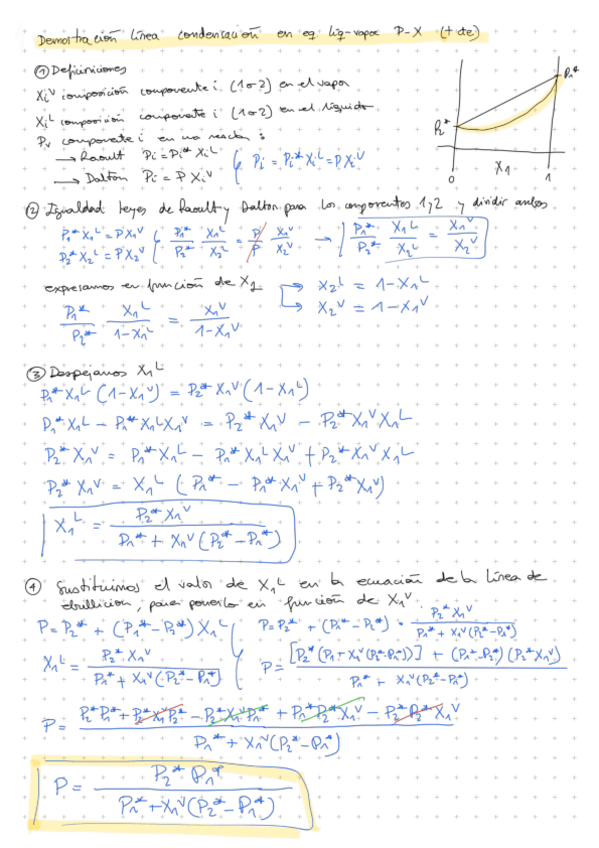 Demostración línea condensación en eq. líq-vapor P-X (T cte)
① Deficiniciones
Xiᵛ composición componente i (1 o 2) en el vapor
Xiᴸ composición componente i (1 o 2) en el líquido
Pᵥ componente i en una
→ Raoult Pi = Pi* Xiᴸ
→ Dalton Pi = P Xiᵛ
Pi = Pi* Xiᴸ = P Xiᵛ
P₂*
P₁*
0
X₁
1
② Igualdad leyes de Raoult y Dalton para los componentes 1 y 2 y dividir ambos
P₁* X₁ᴸ = P X₁ᵛ
P₂* X₂ᴸ = P X₂ᵛ
P₁*/P₂* X₁ᴸ/X₂ᴸ = P/P X₁ᵛ/X₂ᵛ → P₁*/P₂* X₁ᴸ/X₂ᴸ = X₁ᵛ/X₂ᵛ
expresamos en función de X₁
→ X₂ᴸ = 1-X₁ᴸ
→ X₂ᵛ = 1-X₁ᵛ
P₁*/P₂* X₁ᴸ/(1-X₁ᴸ) = X₁ᵛ/(1-X₁ᵛ)
③ Despejamos X₁ᴸ
P₁* X₁ᴸ (1-X₁ᵛ) = P₂* X₁ᵛ (1-X₁ᴸ)
P₁* X₁ᴸ - P₁* X₁ᴸ X₁ᵛ = P₂* X₁ᵛ - P₂* X₁ᵛ X₁ᴸ
P₂* X₁ᵛ = P₁* X₁ᴸ - P₁* X₁ᴸ X₁ᵛ + P₂* X₁ᵛ X₁ᴸ
P₂* X₁ᵛ = X₁ᴸ (P₁* - P₁* X₁ᵛ + P₂* X₁ᵛ)
X₁ᴸ = P₂* X₁ᵛ / P₁* + X₁ᵛ (P₂* - P₁*)
④ Sustituimos el valor de X₁ᴸ en la ecuación de la línea de
ebullición, para ponerlo en función de X₁ᵛ
P = P₂* + (P₁* - P₂*) X₁ᴸ
X₁ᴸ = P₂* X₁ᵛ / P₁* + X₁ᵛ (P₂* - P₁*)
P = P₂* + (P₁* - P₂*) · P₂* X₁ᵛ / P₁* + X₁ᵛ (P₂* - P₁*)
P = [P₂* (P₁ + X₁ᵛ (P₂* - P₁*))] + (P₁* - P₂*) (P₂* X₁ᵛ) / P₁* + X₁ᵛ (P₂* - P₁*)
P = P₂* P₁* + P₂* X₁ᵛ P₂* - P₂* X₁ᵛ P₁* + P₁* P₂* X₁ᵛ - P₂* P₂* X₁ᵛ / P₁* + X₁ᵛ (P₂* - P₁*)
P = P₂* P₁* / P₁* + X₁ᵛ (P₂* - P₁*)